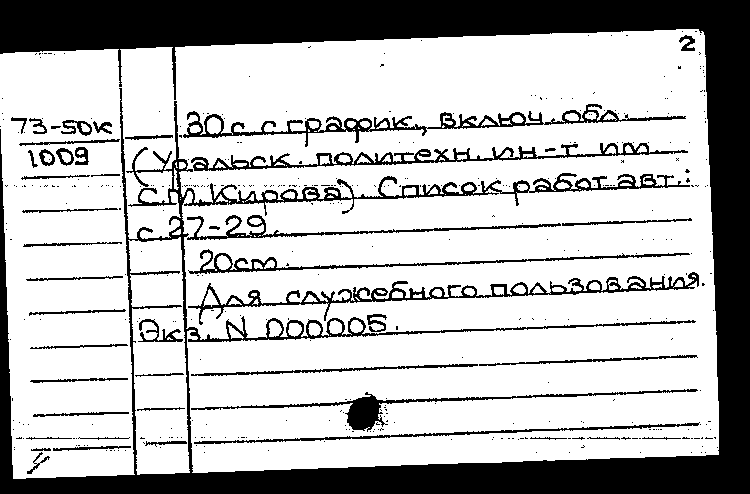 2
73-50К 30 с. с график., включ. обл.
1009 (Уральск. политехн. ин-т им.
С.М. Кирова). Список работ авт.:
с. 27-29.
20 см.
Для служебного пользования.
Экз. N 000005.